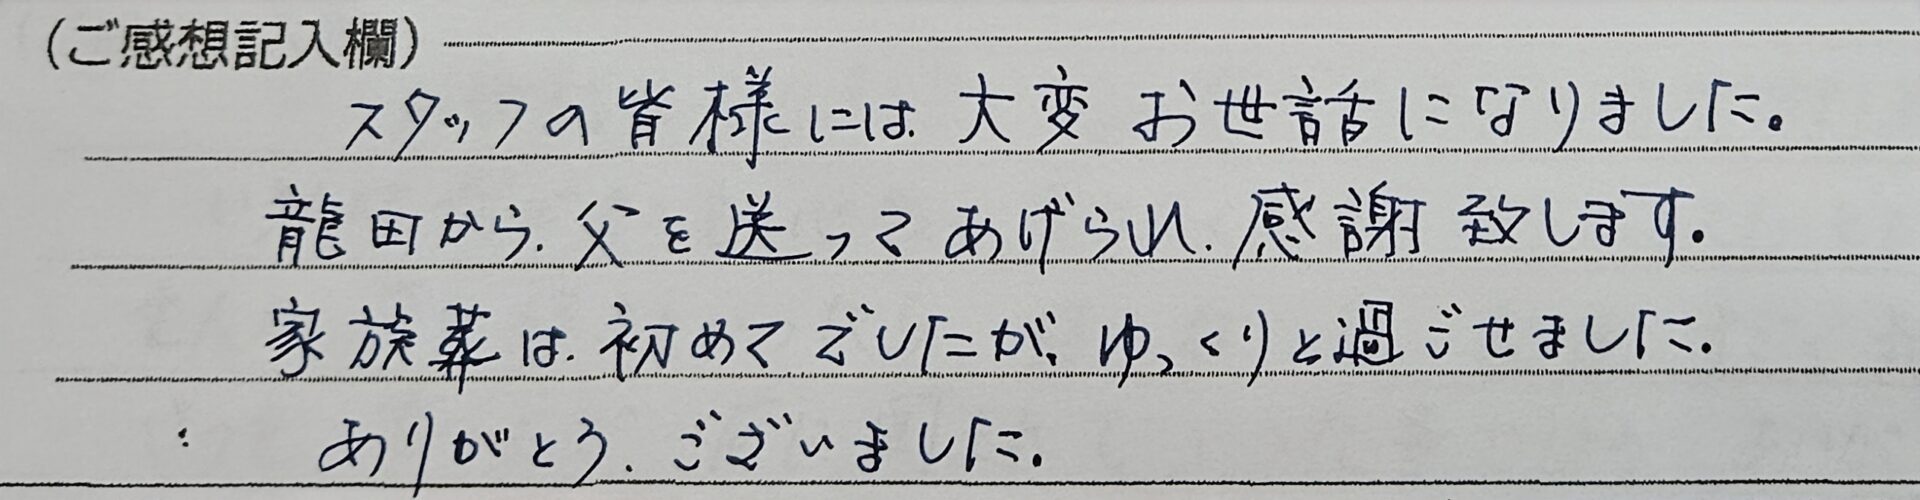 （ご感想記入欄）
スタッフの皆様には、大変お世話になりました。
龍田から、父を送ってあげられ、感謝致します。
家族葬は、初めてでしたが、ゆっくりと過ごせました。
ありがとう、ございました。